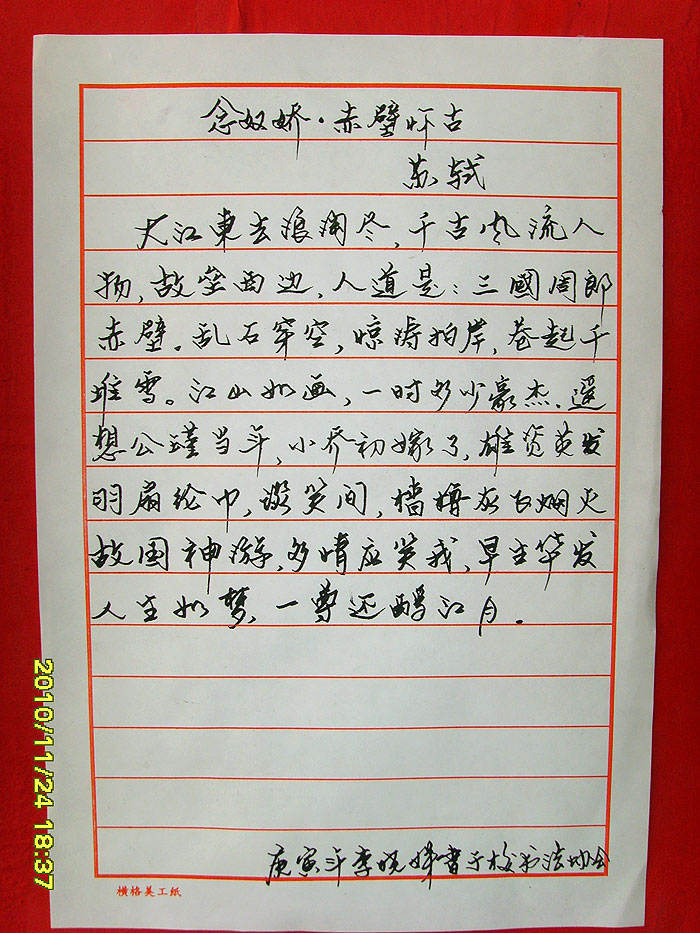 念奴娇·赤壁怀古
苏轼
大江東去浪淘尽，千古风流人
物，故垒西边，人道是：三國周郎
赤壁。乱石穿空，惊涛拍岸，卷起千
堆雪。江山如画，一时多少豪杰。遥
想公瑾当年，小乔初嫁了，雄姿英发
羽扇纶巾，谈笑间，樯橹灰飞烟灭
故国神游，多情应笑我，早生华发
人生如梦，一尊还酹江月．
庚寅年李晓 书于校书法协会
横格美工纸
2010/11/24 18:37